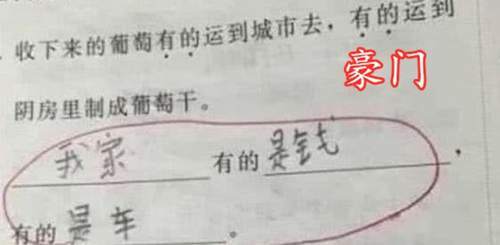 收下来的葡萄有的运到城市去，有的运到
豪门
阴房里制成葡萄干。
我家有的是钱，
有的是车。